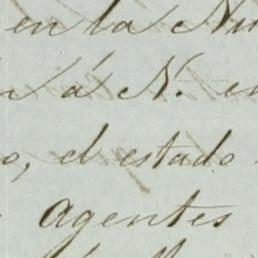 en la Nu
á N. en
o, el estado
agentes